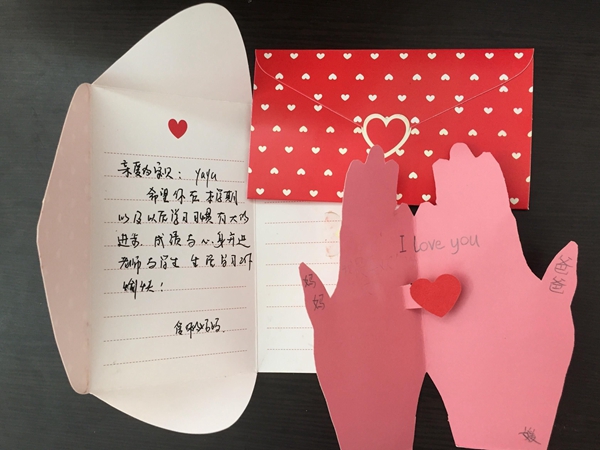 亲爱的宝贝：yaya
希望你在本学期
以及以后学习习惯有大的
进步，成绩与心身并进
老师与学生 生活学习
愉快！
妈妈.
I love you
妈妈